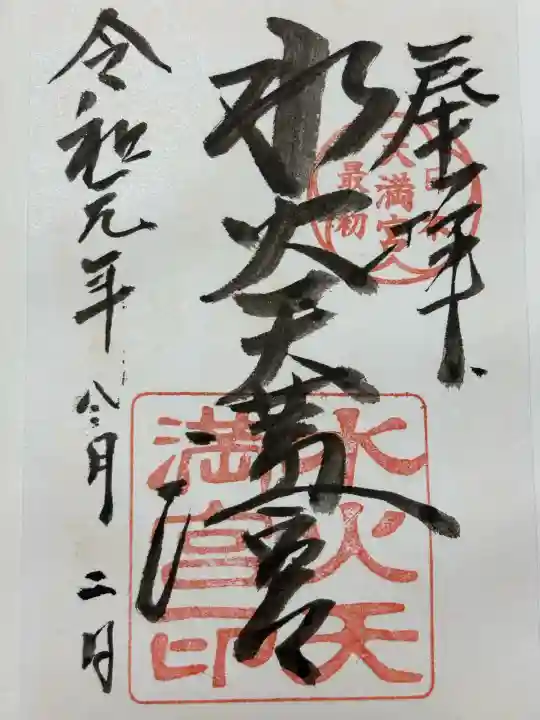 奉拝
水火天満宮
令和元年 八月 二日
日本
最初
天満宮
水火天
満宮印